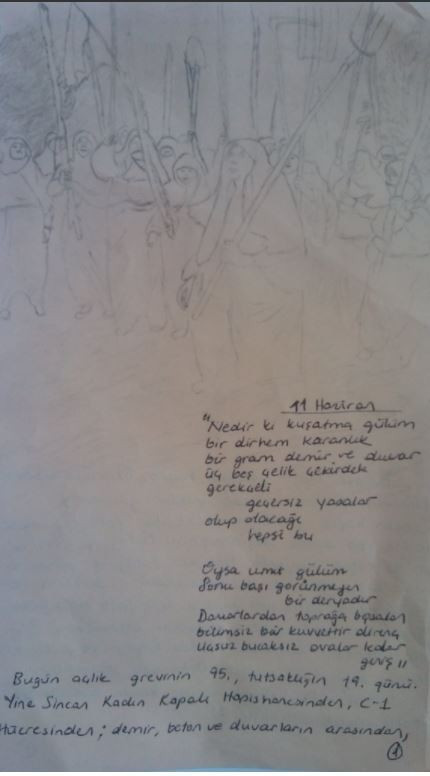 11 Haziran
"Nedir ki kuşatma gülüm
bir dirhem karanlık
bir gram demir ve duvar
üç beş çelik çekirdek
gerekçeli
geçersiz yasalar
olup olacağı
hepsi bu
Oysa umut gülüm
Sonu başı görünmeyen
bir deryadır
Damarlardan toprağa
bir kuvvettir direnç
uçsuz bucaksız ovalar kadar
geniş"
Bugün açlık grevinin 95., tutsaklığın 19. günü.
Yine Sincan Kadın Kapalı Hapishanesinden, C-1
Hücresinden; demir, beton ve duvarların arasından,
1